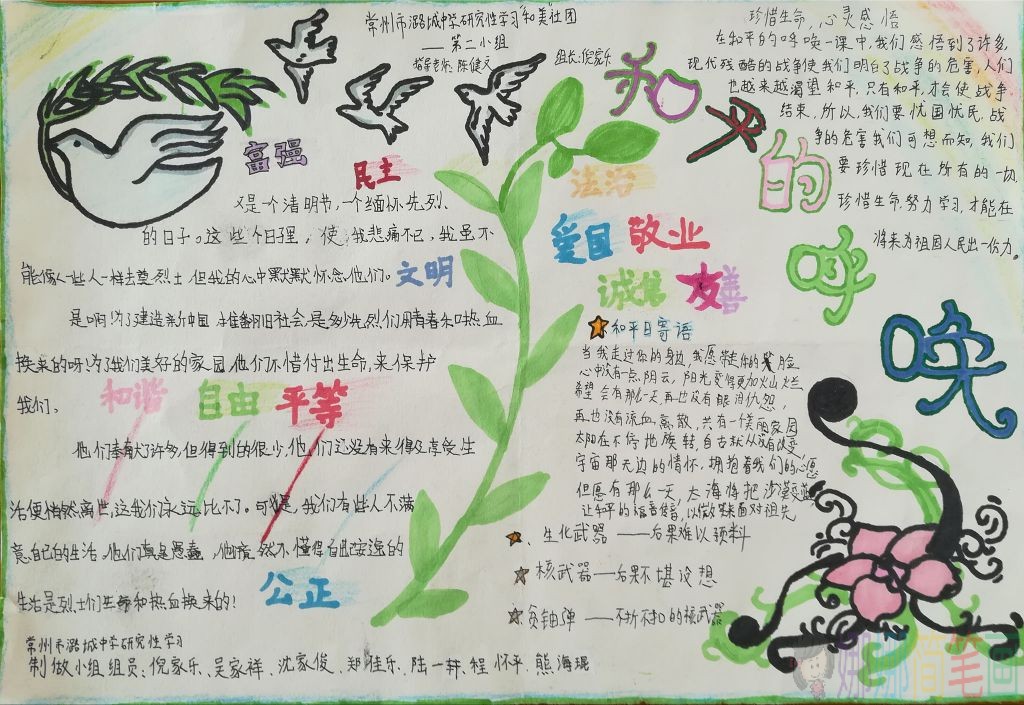 常州市潞城中学研究性学习"和美"社团
——第二小组
指导老师：陈健文
组长：倪家乐
和平的呼唤
富强
民主
又是一个清明节，一个缅怀先烈、
的日子。这些个日子里，使，我悲痛不已，我虽不
能像人些人一样去奠烈士，但我的心中默默怀念他们。
文明
是啊！为了建造新中国
是多少先烈们用青春和热血
换来的呀！为了我们美好的家园，他们不惜付出生命，来保护
我们。
和谐 自由 平等
他们奉献许多，但得到的很少，他们还没有来得及享受生
活便悄然离世，这我们永远比不了。可是，我们有些人不满
意自己的生活，他们真是愚蠢，他
然不懂得自己安逸的
生活是烈士们生命和热血换来的！
公正
法治
爱国 敬业
诚信 友善
珍惜生命，心灵感悟
在和平的呼唤一课中，我们感悟到了许多，
现代残酷的战争使我们明白了战争的危害，人们
也越来越渴望和平，只有和平，才会使战争
结束，所以，我们要忧国忧民，战
争的危害我们可想而知，我们
要珍惜现在所有的一切，
珍惜生命，努力学习，才能在
将来为祖国人民出一份力。
和平日寄语
当我走过你的身边，我愿
你的笑脸
心中没有一点阴云，阳光变得更加火山大烂
希望会有那么一天，再也没有眼泪仇怨，
再也没有流血离散，共有一个美丽家园
太阳在不停地旋转，自古就从没有改变，
宇宙那无边的情怀，拥抱着我们的心愿
但愿有那么一天，大海将把沙漠
让和平的福音传音，以微笑来面对祖先
生化武器——后果难以预料
核武器——后果不堪设想
贫铀弹——不折不扣的核武器
常州市潞城中学研究性学习
制做小组组员：倪家乐、吴家祥、沈家俊、郑佳乐、陆一轩、程怀平、熊海琨
娜娜简笔画